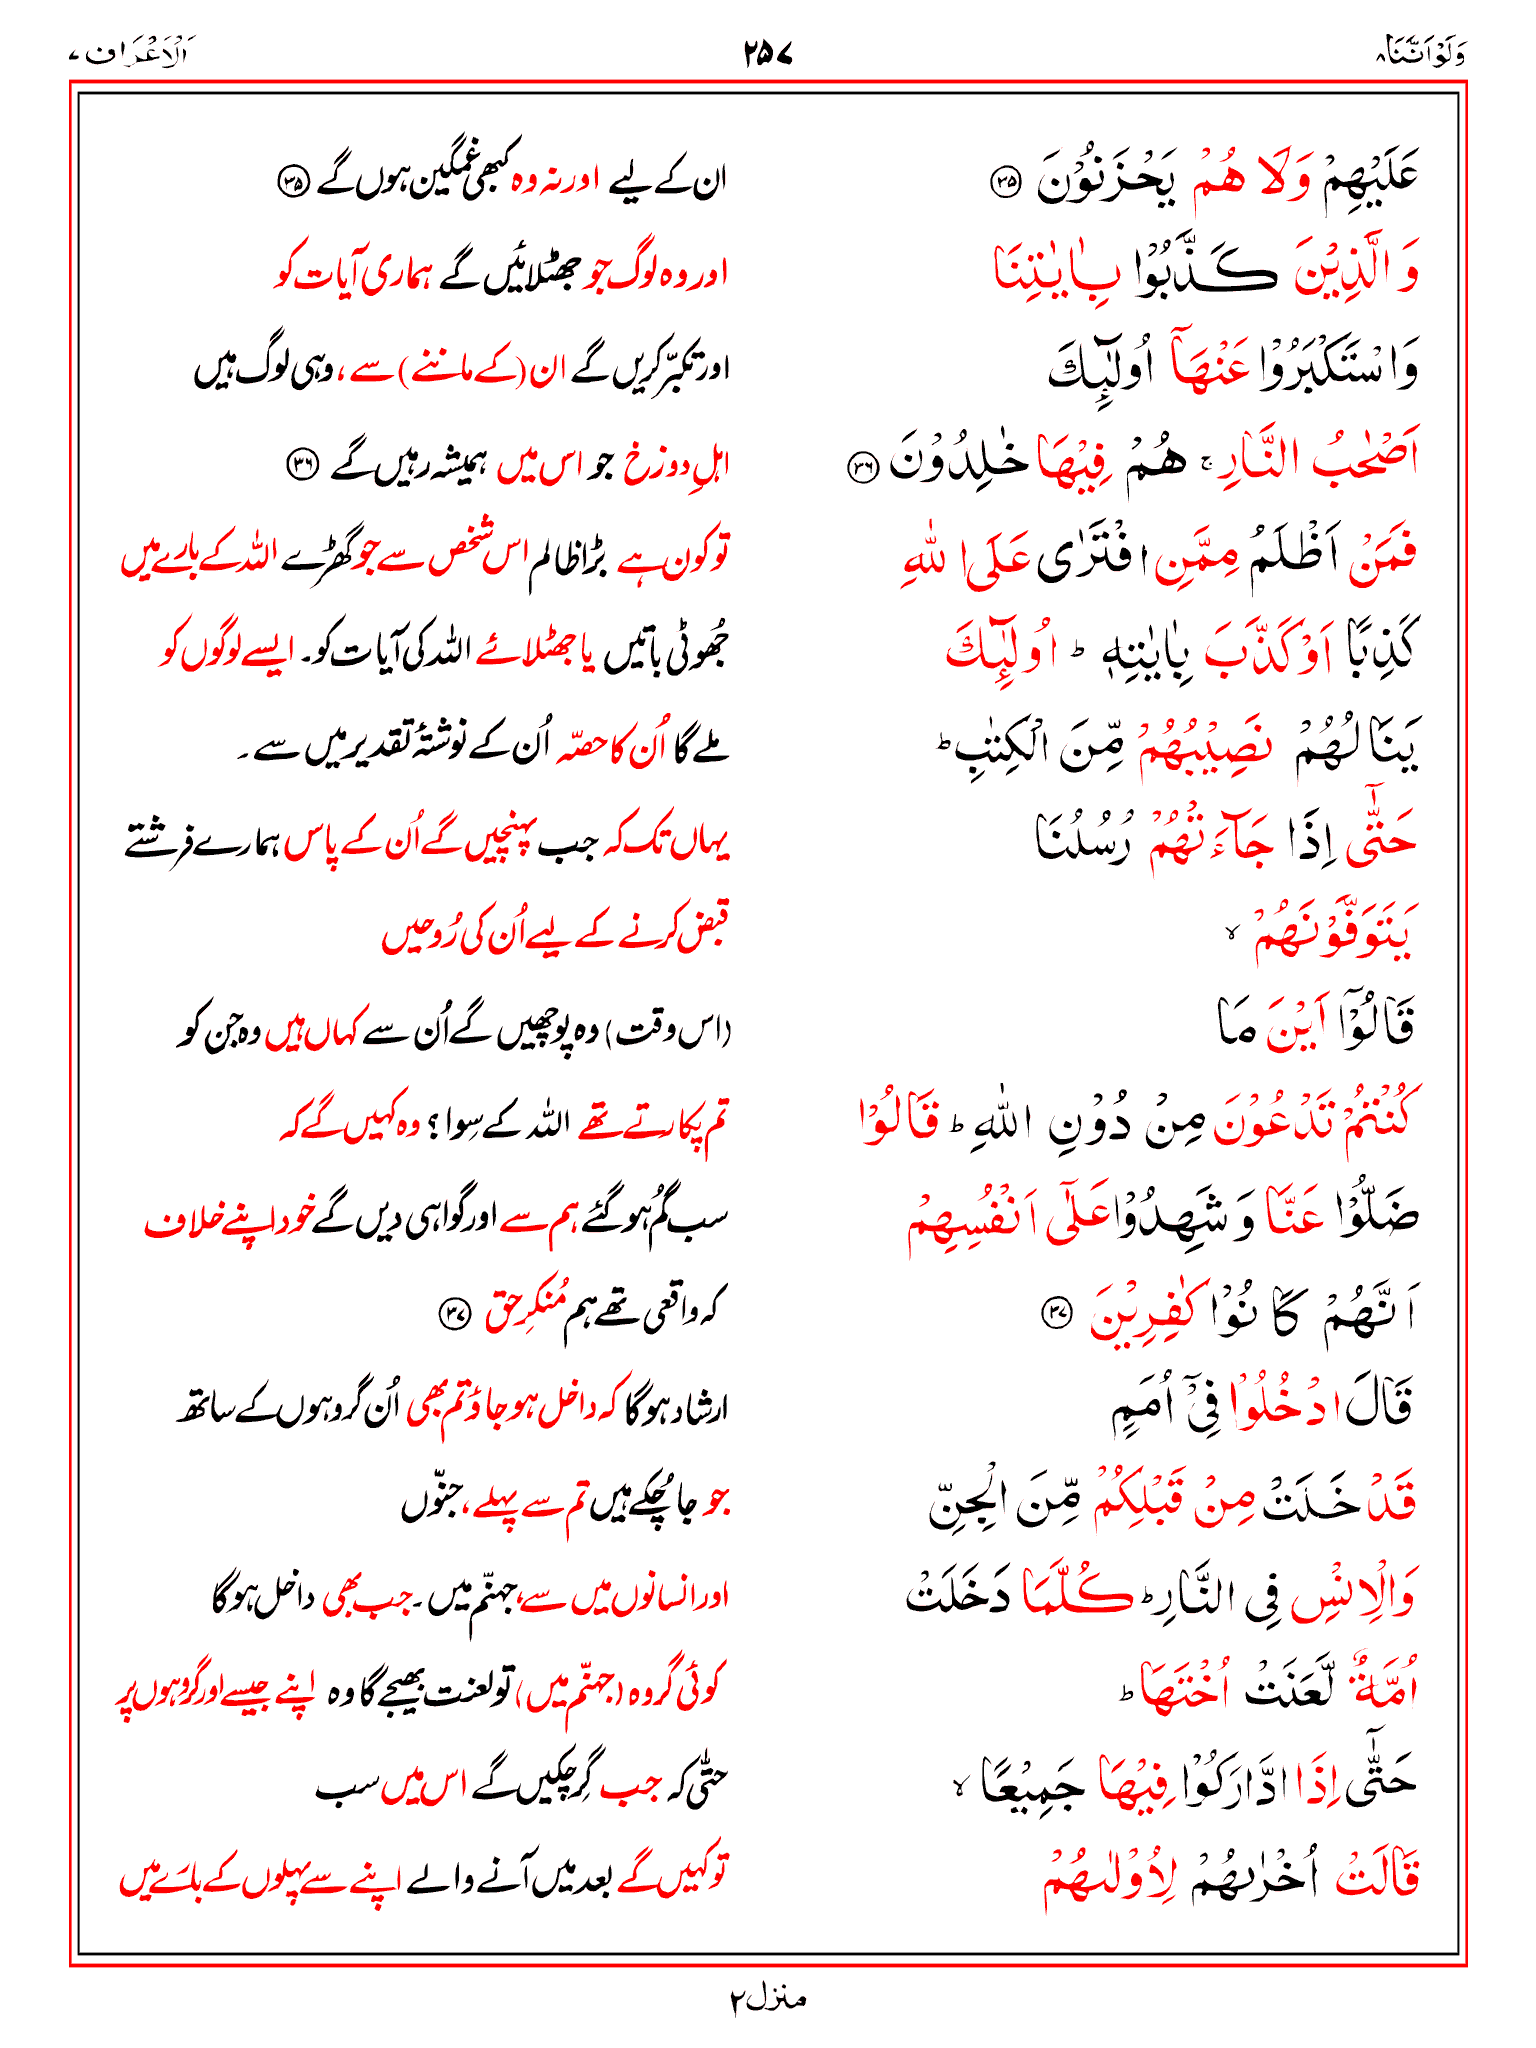 وَلَوْاَنَّنَا ۸ ۲۵۷ اَلْاَعْرَاف ۷
عَلَيْهِمْ وَلَا هُمْ يَحْزَنُوْنَ ۳۵ ان کے لیے اور نہ وہ کبھی غمگین ہوں گے ۳۵
وَالَّذِيْنَ كَذَّبُوْا بِاٰيٰتِنَا اور وہ لوگ جو جھٹلائیں گے ہماری آیات کو
وَاسْتَكْبَرُوْا عَنْهَآ اُولٰٓئِكَ اور تکبّر کریں گے ان (کے ماننے) سے، وہی لوگ ہیں
اَصْحٰبُ النَّارِ ۚ هُمْ فِيْهَا خٰلِدُوْنَ ۳۶ اہلِ دوزخ جو اس میں ہمیشہ رہیں گے ۳۶
فَمَنْ اَظْلَمُ مِمَّنِ افْتَرٰى عَلَى اللهِ تو کون ہے بڑا ظالم اس شخص سے جو گھڑے اللہ کے بارے میں
كَذِبًا اَوْ كَذَّبَ بِاٰيٰتِهٖ ؕ اُولٰٓئِكَ جُھوٹی باتیں یا جھٹلائے اللہ کی آیات کو۔ ایسے لوگوں کو
يَنَالُهُمْ نَصِيْبُهُمْ مِّنَ الْكِتٰبِ ؕ ملے گا اُن کا حصّہ اُن کے نوشتۂ تقدیر میں سے۔
حَتّٰٓى اِذَا جَآءَتْهُمْ رُسُلُنَا یہاں تک کہ جب پہنچیں گے اُن کے پاس ہمارے فرشتے
يَتَوَفَّوْنَهُمْ ۙ قبض کرنے کے لیے اُن کی رُوحیں
قَالُوْٓا اَيْنَ مَا (اس وقت) وہ پوچھیں گے اُن سے کہاں ہیں وہ جن کو
كُنْتُمْ تَدْعُوْنَ مِنْ دُوْنِ اللهِ ؕ قَالُوْا تم پکارتے تھے اللہ کے سِوا؟ وہ کہیں گے کہ
ضَلُّوْا عَنَّا وَشَهِدُوْا عَلٰٓى اَنْفُسِهِمْ سب گُم ہو گئے ہم سے اور گواہی دیں گے خود اپنے خلاف
اَنَّهُمْ كَانُوْا كٰفِرِيْنَ ۳۷ کہ واقعی تھے ہم مُنکرِ حق ۳۷
قَالَ ادْخُلُوْا فِيْٓ اُمَمٍ ارشاد ہو گا کہ داخل ہو جاؤ تم بھی اُن گروہوں کے ساتھ
قَدْ خَلَتْ مِنْ قَبْلِكُمْ مِّنَ الْجِنِّ جو جا چُکے ہیں تم سے پہلے، جنّوں
وَالْاِنْسِ فِى النَّارِ ؕ كُلَّمَا دَخَلَتْ اور انسانوں میں سے، جہنّم میں۔ جب بھی داخل ہو گا
اُمَّةٌ لَّعَنَتْ اُخْتَهَا ؕ کوئی گروہ (جہنّم میں) تو لعنت بھیجے گا وہ اپنے جیسے اور گروہوں پر
حَتّٰٓى اِذَا ادَّارَكُوْا فِيْهَا جَمِيْعًا ۙ حتّٰی کہ جب گِر چکیں گے اس میں سب
قَالَتْ اُخْرٰىهُمْ لِاُوْلٰىهُمْ تو کہیں گے بعد میں آنے والے اپنے سے پہلوں کے بارے میں
منزل ۲